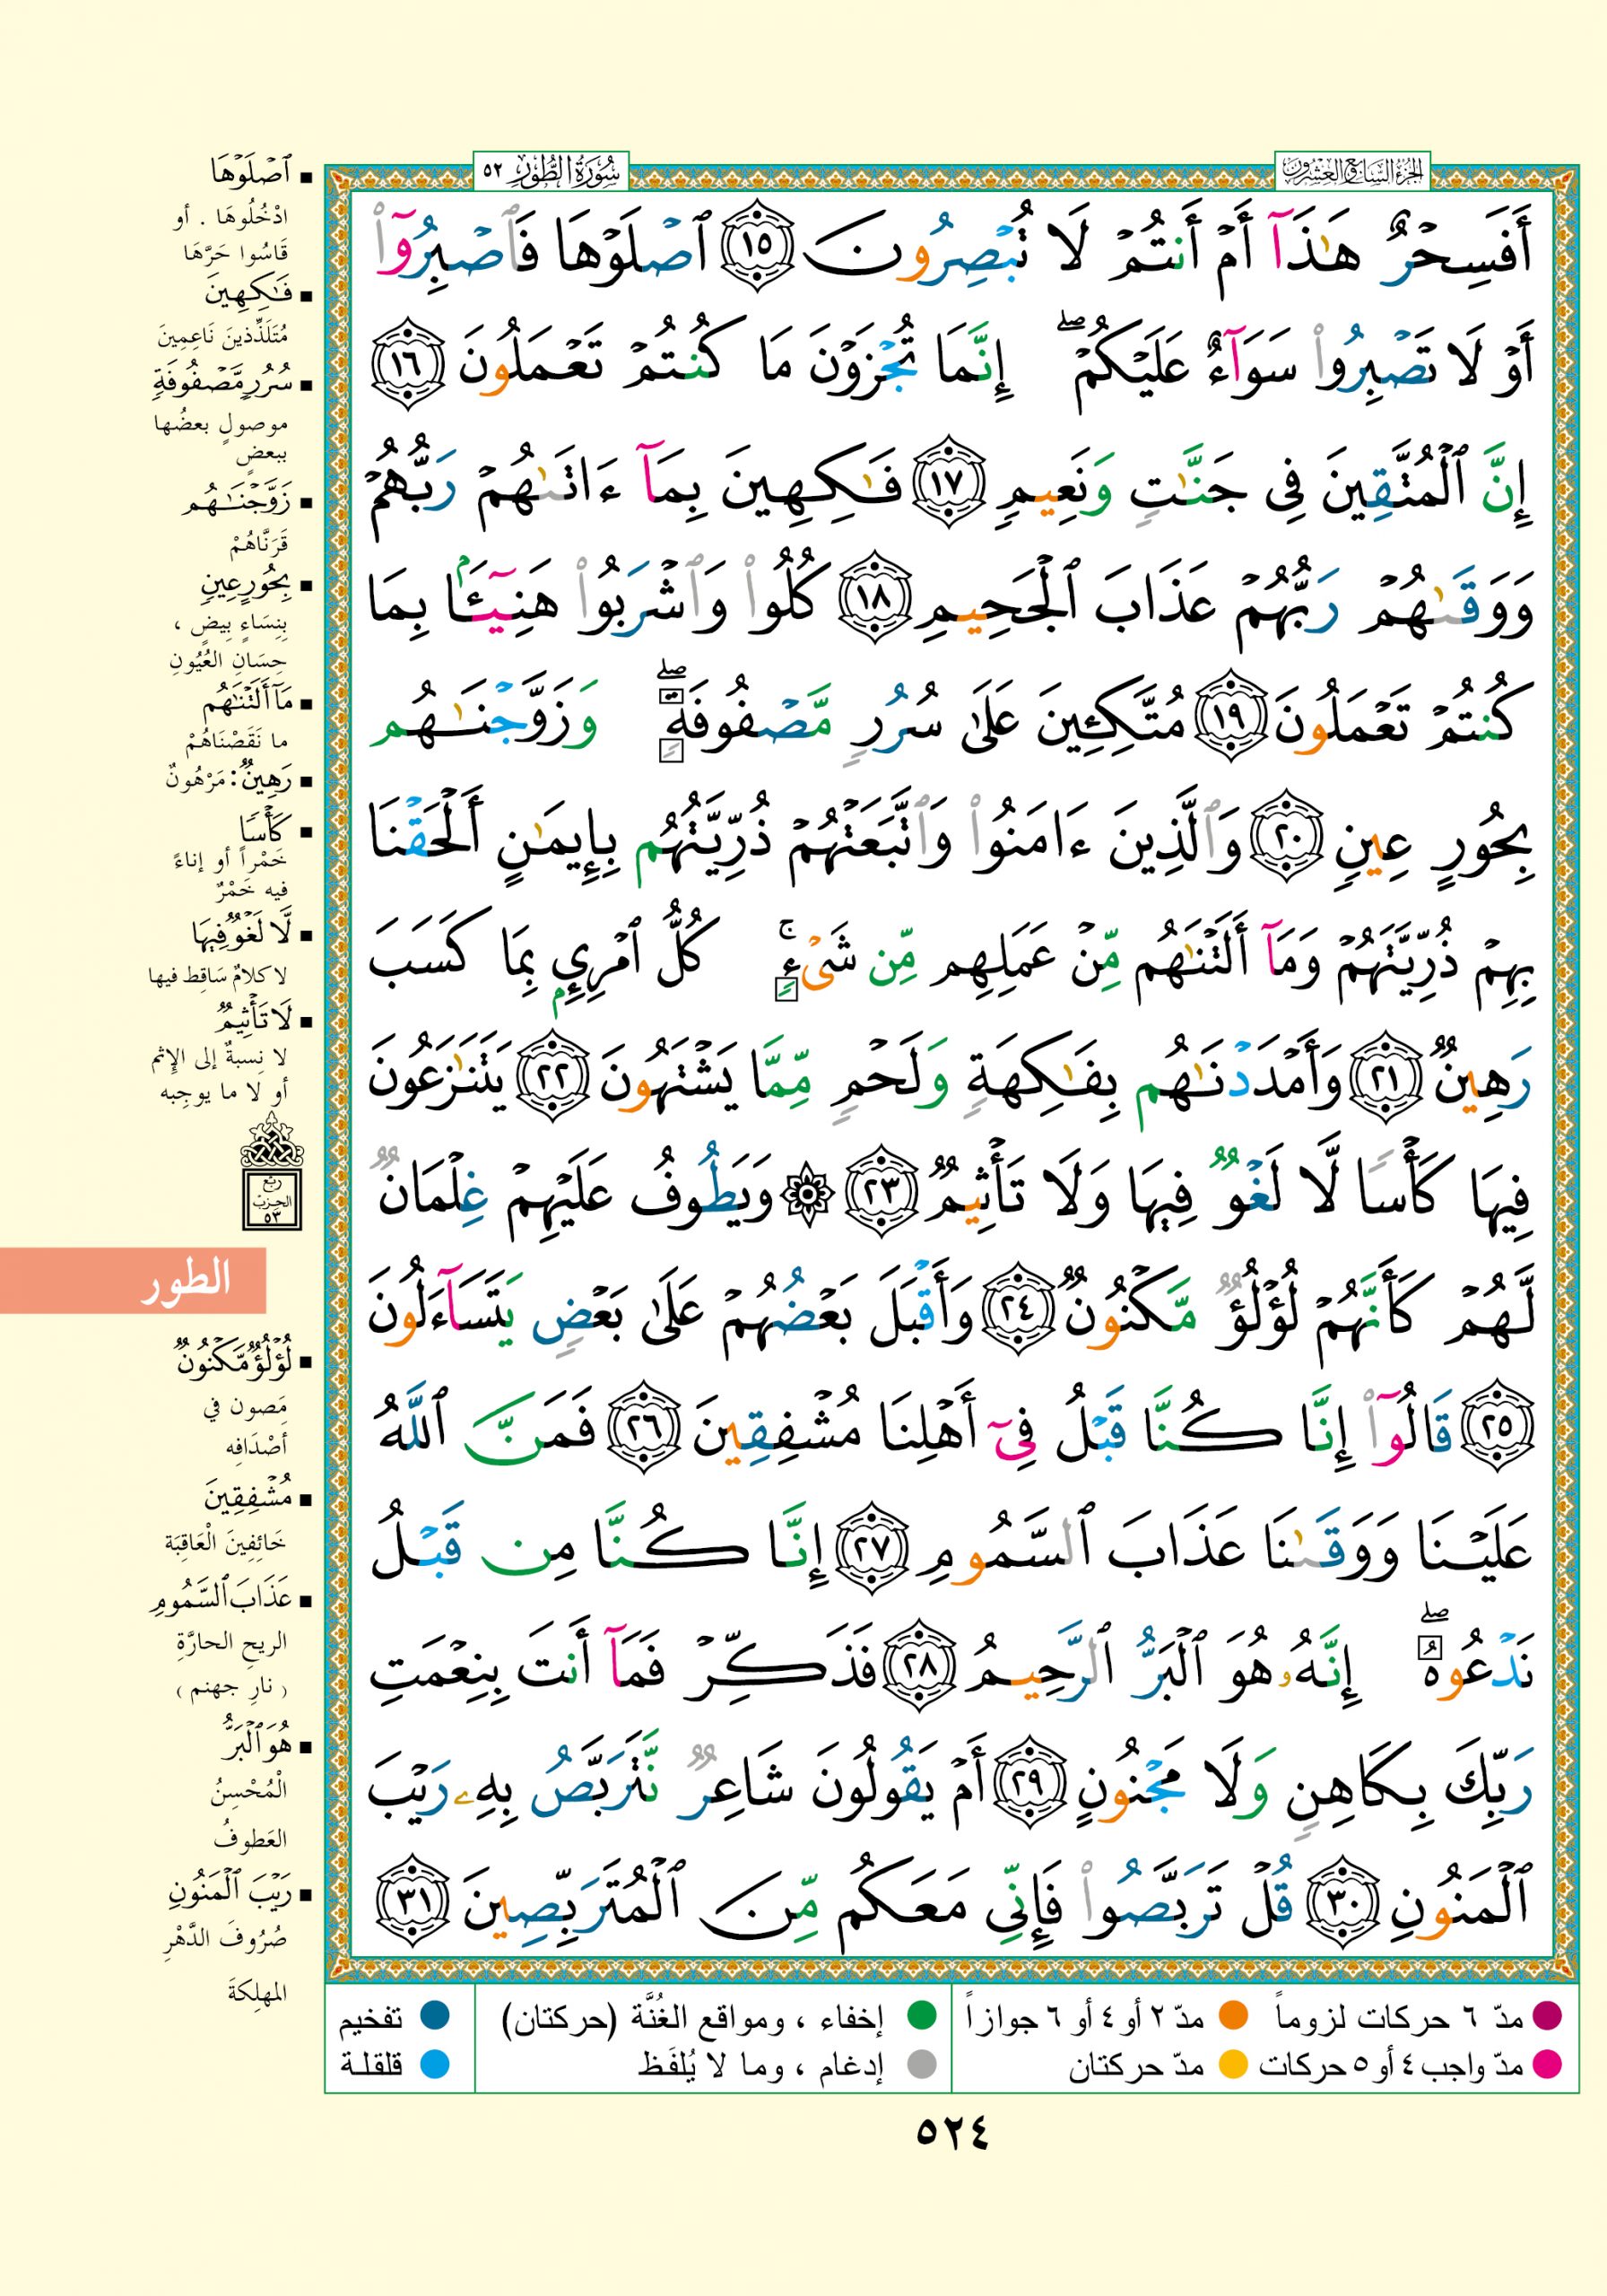 الجزء السابع والعشرون
سورة الطور ٥٢
أَفَسِحْرٌ هَٰذَآ أَمْ أَنتُمْ لَا تُبْصِرُونَ ١٥ ٱصْلَوْهَا فَٱصْبِرُوٓا۟
أَوْ لَا تَصْبِرُوا۟ سَوَآءٌ عَلَيْكُمْ ۖ إِنَّمَا تُجْزَوْنَ مَا كُنتُمْ تَعْمَلُونَ ١٦
إِنَّ ٱلْمُتَّقِينَ فِى جَنَّٰتٍ وَنَعِيمٍ ١٧ فَٰكِهِينَ بِمَآ ءَاتَىٰهُمْ رَبُّهُمْ
وَوَقَىٰهُمْ رَبُّهُمْ عَذَابَ ٱلْجَحِيمِ ١٨ كُلُوا۟ وَٱشْرَبُوا۟ هَنِيٓـًٔۢا بِمَا
كُنتُمْ تَعْمَلُونَ ١٩ مُتَّكِـِٔينَ عَلَىٰ سُرُرٍ مَّصْفُوفَةٍ ۖ وَزَوَّجْنَٰهُم
بِحُورٍ عِينٍ ٢٠ وَٱلَّذِينَ ءَامَنُوا۟ وَٱتَّبَعَتْهُمْ ذُرِّيَّتُهُم بِإِيمَٰنٍ أَلْحَقْنَا
بِهِمْ ذُرِّيَّتَهُمْ وَمَآ أَلَتْنَٰهُم مِّنْ عَمَلِهِم مِّن شَىْءٍ ۚ كُلُّ ٱمْرِئٍۭ بِمَا كَسَبَ
رَهِينٌ ٢١ وَأَمْدَدْنَٰهُم بِفَٰكِهَةٍ وَلَحْمٍ مِّمَّا يَشْتَهُونَ ٢٢ يَتَنَٰزَعُونَ
فِيهَا كَأْسًا لَّا لَغْوٌ فِيهَا وَلَا تَأْثِيمٌ ٢٣ ۞ وَيَطُوفُ عَلَيْهِمْ غِلْمَانٌ
لَّهُمْ كَأَنَّهُمْ لُؤْلُؤٌ مَّكْنُونٌ ٢٤ وَأَقْبَلَ بَعْضُهُمْ عَلَىٰ بَعْضٍ يَتَسَآءَلُونَ
٢٥ قَالُوٓا۟ إِنَّا كُنَّا قَبْلُ فِىٓ أَهْلِنَا مُشْفِقِينَ ٢٦ فَمَنَّ ٱللَّهُ
عَلَيْنَا وَوَقَىٰنَا عَذَابَ ٱلسَّمُومِ ٢٧ إِنَّا كُنَّا مِن قَبْلُ
نَدْعُوهُ ۖ إِنَّهُۥ هُوَ ٱلْبَرُّ ٱلرَّحِيمُ ٢٨ فَذَكِّرْ فَمَآ أَنتَ بِنِعْمَتِ
رَبِّكَ بِكَاهِنٍ وَلَا مَجْنُونٍ ٢٩ أَمْ يَقُولُونَ شَاعِرٌ نَّتَرَبَّصُ بِهِۦ رَيْبَ
ٱلْمَنُونِ ٣٠ قُلْ تَرَبَّصُوا۟ فَإِنِّى مَعَكُم مِّنَ ٱلْمُتَرَبِّصِينَ ٣١
ٱصْلَوْهَا
ادْخُلُوهَا . أو
قَاسُوا حَرَّهَا
فَٰكِهِينَ
مُتَلَذِّذينَ نَاعِمِينَ
سُرُرٍ مَّصْفُوفَةٍ
موصولٍ بعضُها
ببعضٍ
زَوَّجْنَٰهُم
قَرَنَّاهُمْ
بِحُورٍ عِينٍ
بِنِسَاءٍ بِيضٍ ،
حِسَانِ العُيُونِ
مَآ أَلَتْنَٰهُم
ما نَقَصْنَاهُمْ
رَهِينٌ : مَرْهُونٌ
كَأْسًا
خَمْراً أو إناءً
فيه خَمْرٌ
لَّا لَغْوٌ فِيهَا
لا كلامٌ سَاقِط فيها
لَا تَأْثِيمٌ
لا نِسبةٌ إلى الإثم
أو لا ما يوجِبه
ربع
الحزب
٥٣
الطور
لُؤْلُؤٌ مَّكْنُونٌ
مَصون في
أصْدَافِه
مُشْفِقِينَ
خَائِفِينَ الْعَاقِبَة
عَذَابَ ٱلسَّمُومِ
الريحِ الحارَّةِ
( نارِ جهنم )
هُوَ ٱلْبَرُّ
الْمُحْسِنُ
العَطوفُ
رَيْبَ ٱلْمَنُونِ
صُرُوفَ الدَّهْرِ
المهلِكةَ
مدّ ٦ حركات لزوماً
مدّ ٢ أو ٤ أو ٦ جوازاً
إخفاء ، ومواقع الغُنَّة (حركتان)
تفخيم
مدّ واجب ٤ أو ٥ حركات
مدّ حركتان
إدغام ، وما لا يُلفَظ
قلقلة
٥٢٤